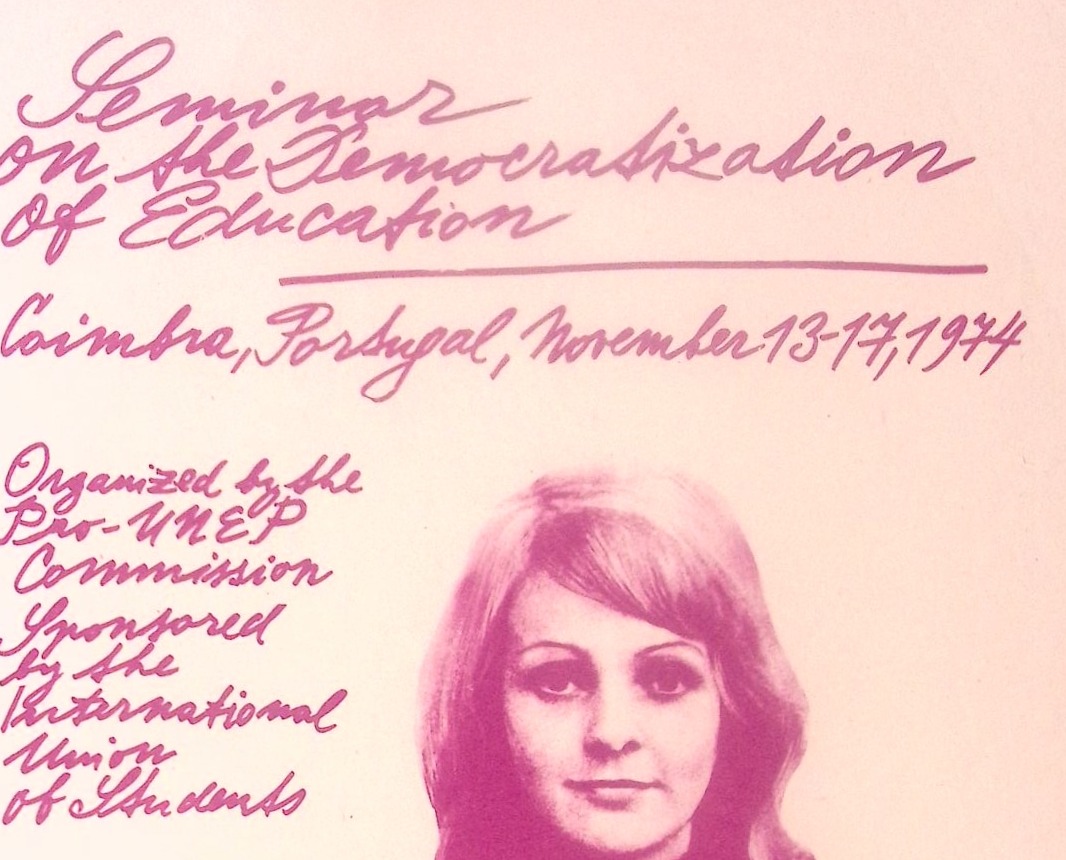 Seminar
on the Democratization
of Education
Coimbra, Portugal, November 13-17, 1974
Organized by the
Pro-UNEP
Commission
Sponsored
by the
International
Union
of Students